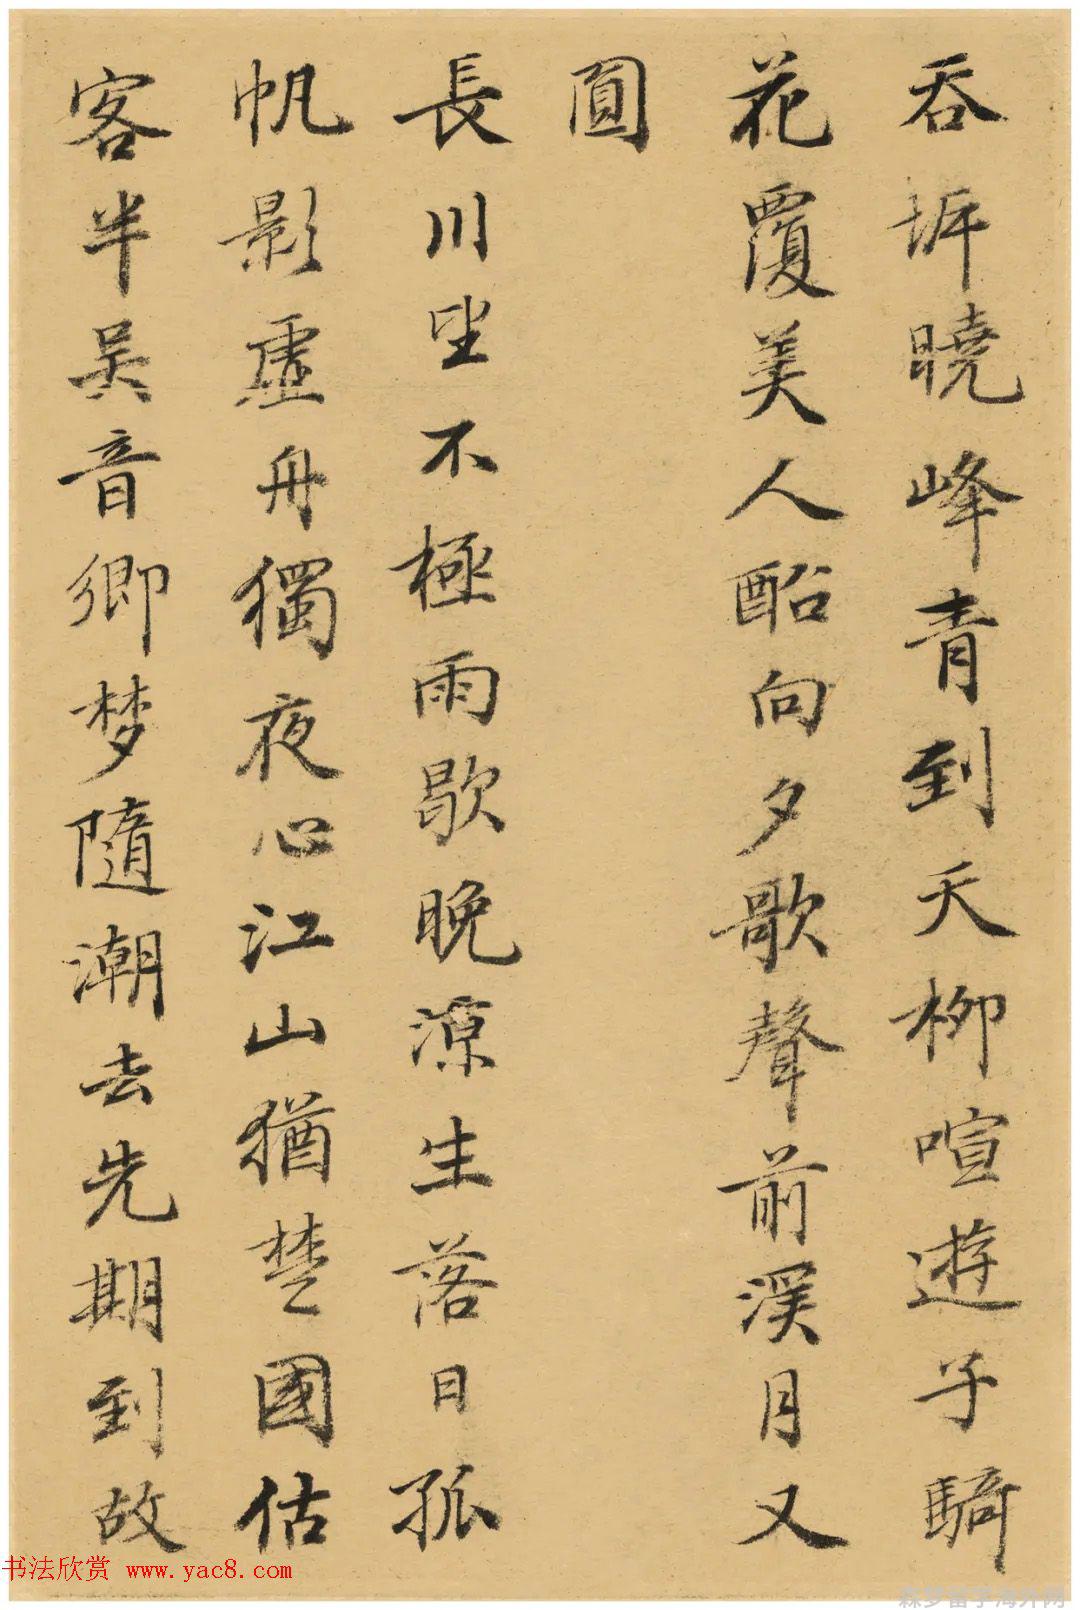 吞坼曉峰青到天柳喧遊子騎
花覆美人酩向夕歌聲前溪月又
圓
長川坐不極雨歇晚涼生落日孤
帆影虛舟獨夜心江山猶楚國估
客半吳音鄉梦隨潮去先期到故
书法欣赏 www.yac8.com
森梦留学海外网